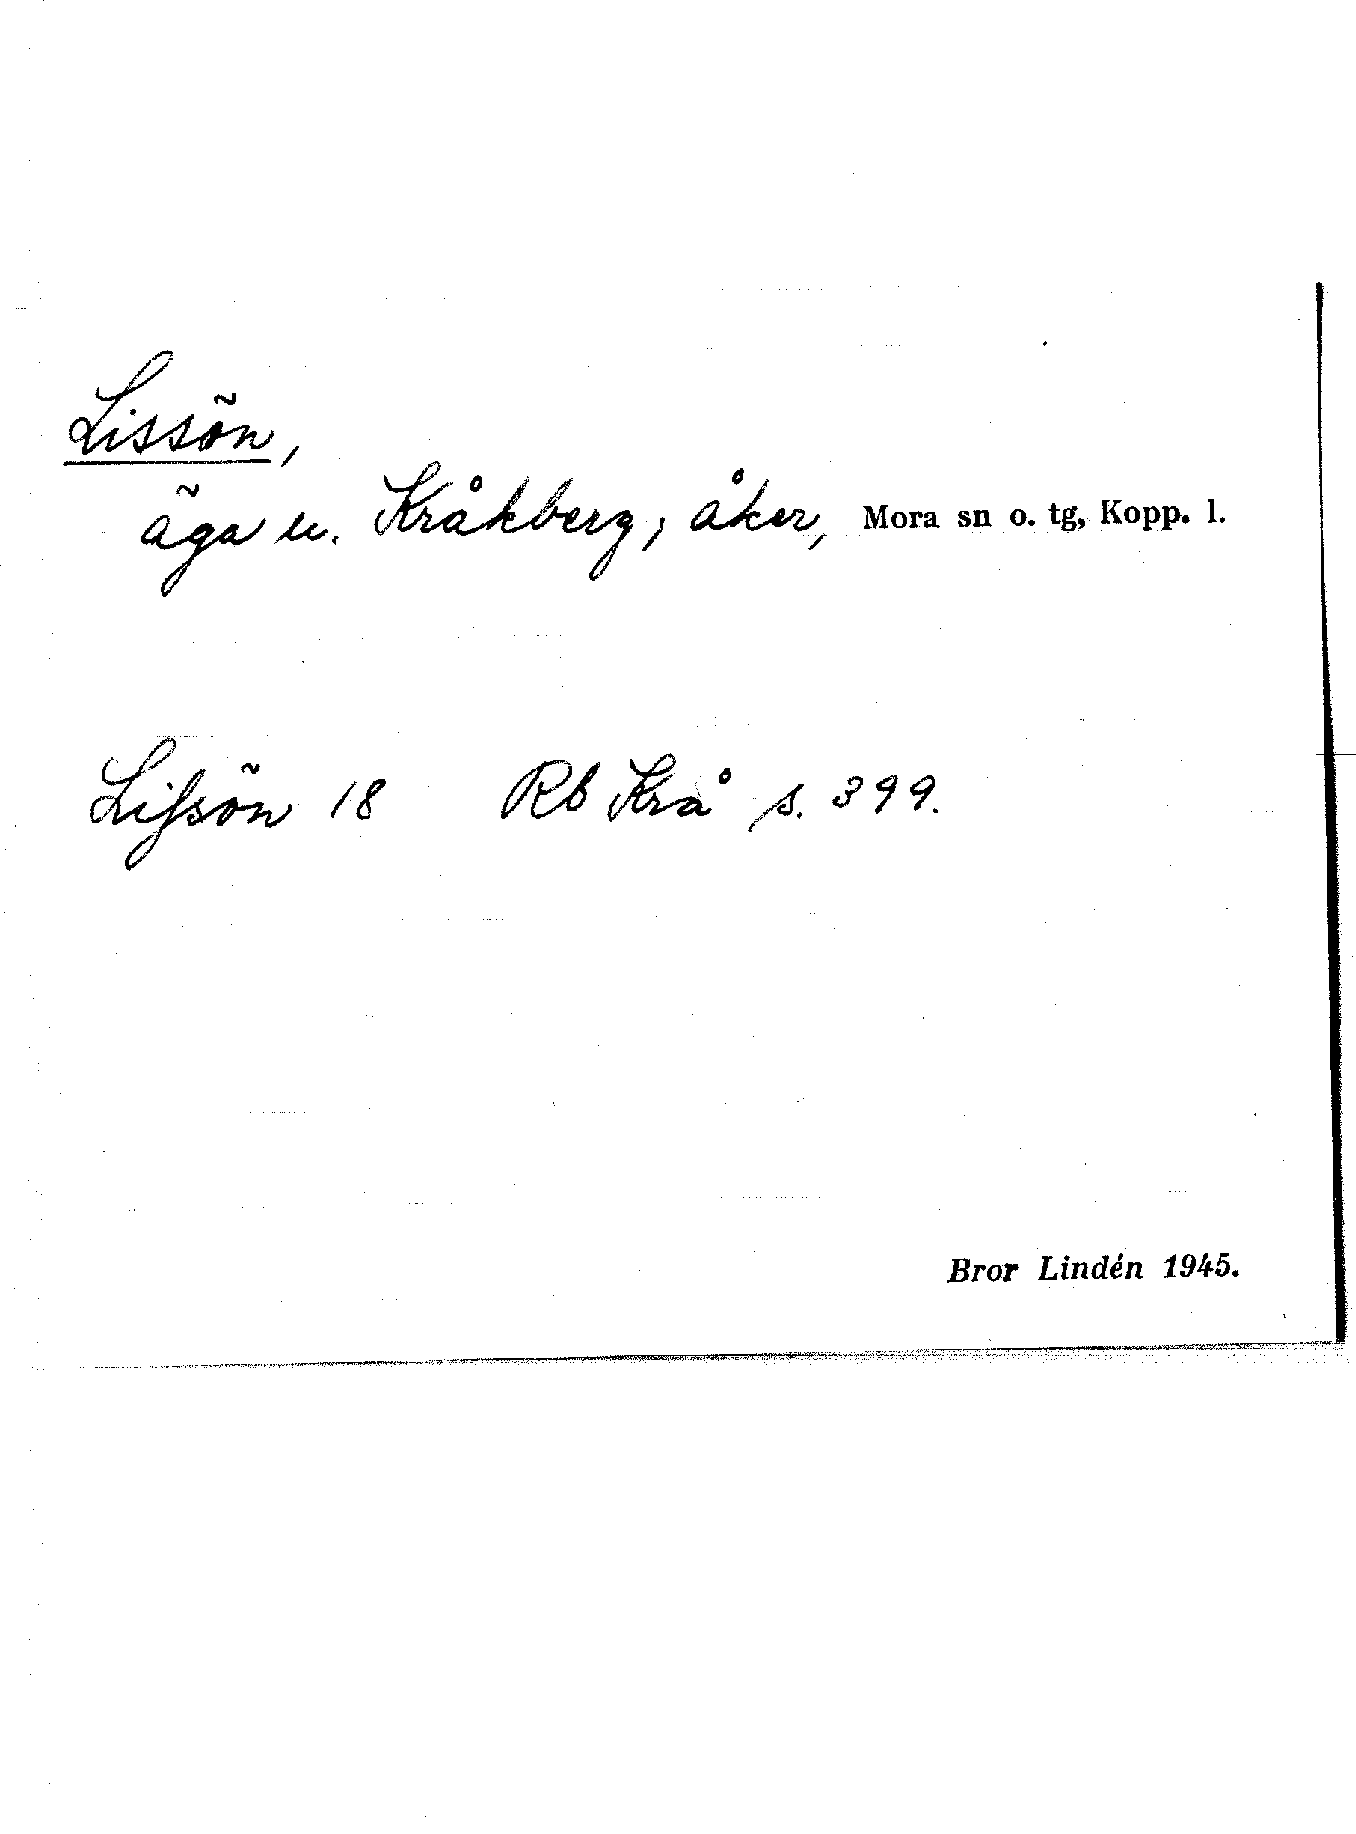 Lissön,
äga u. Kråkberg, åker, Mora sn o. tg, Kopp. l.
Lifsön 18 Rb Krå s. 399.
Bror Lindén 1945.